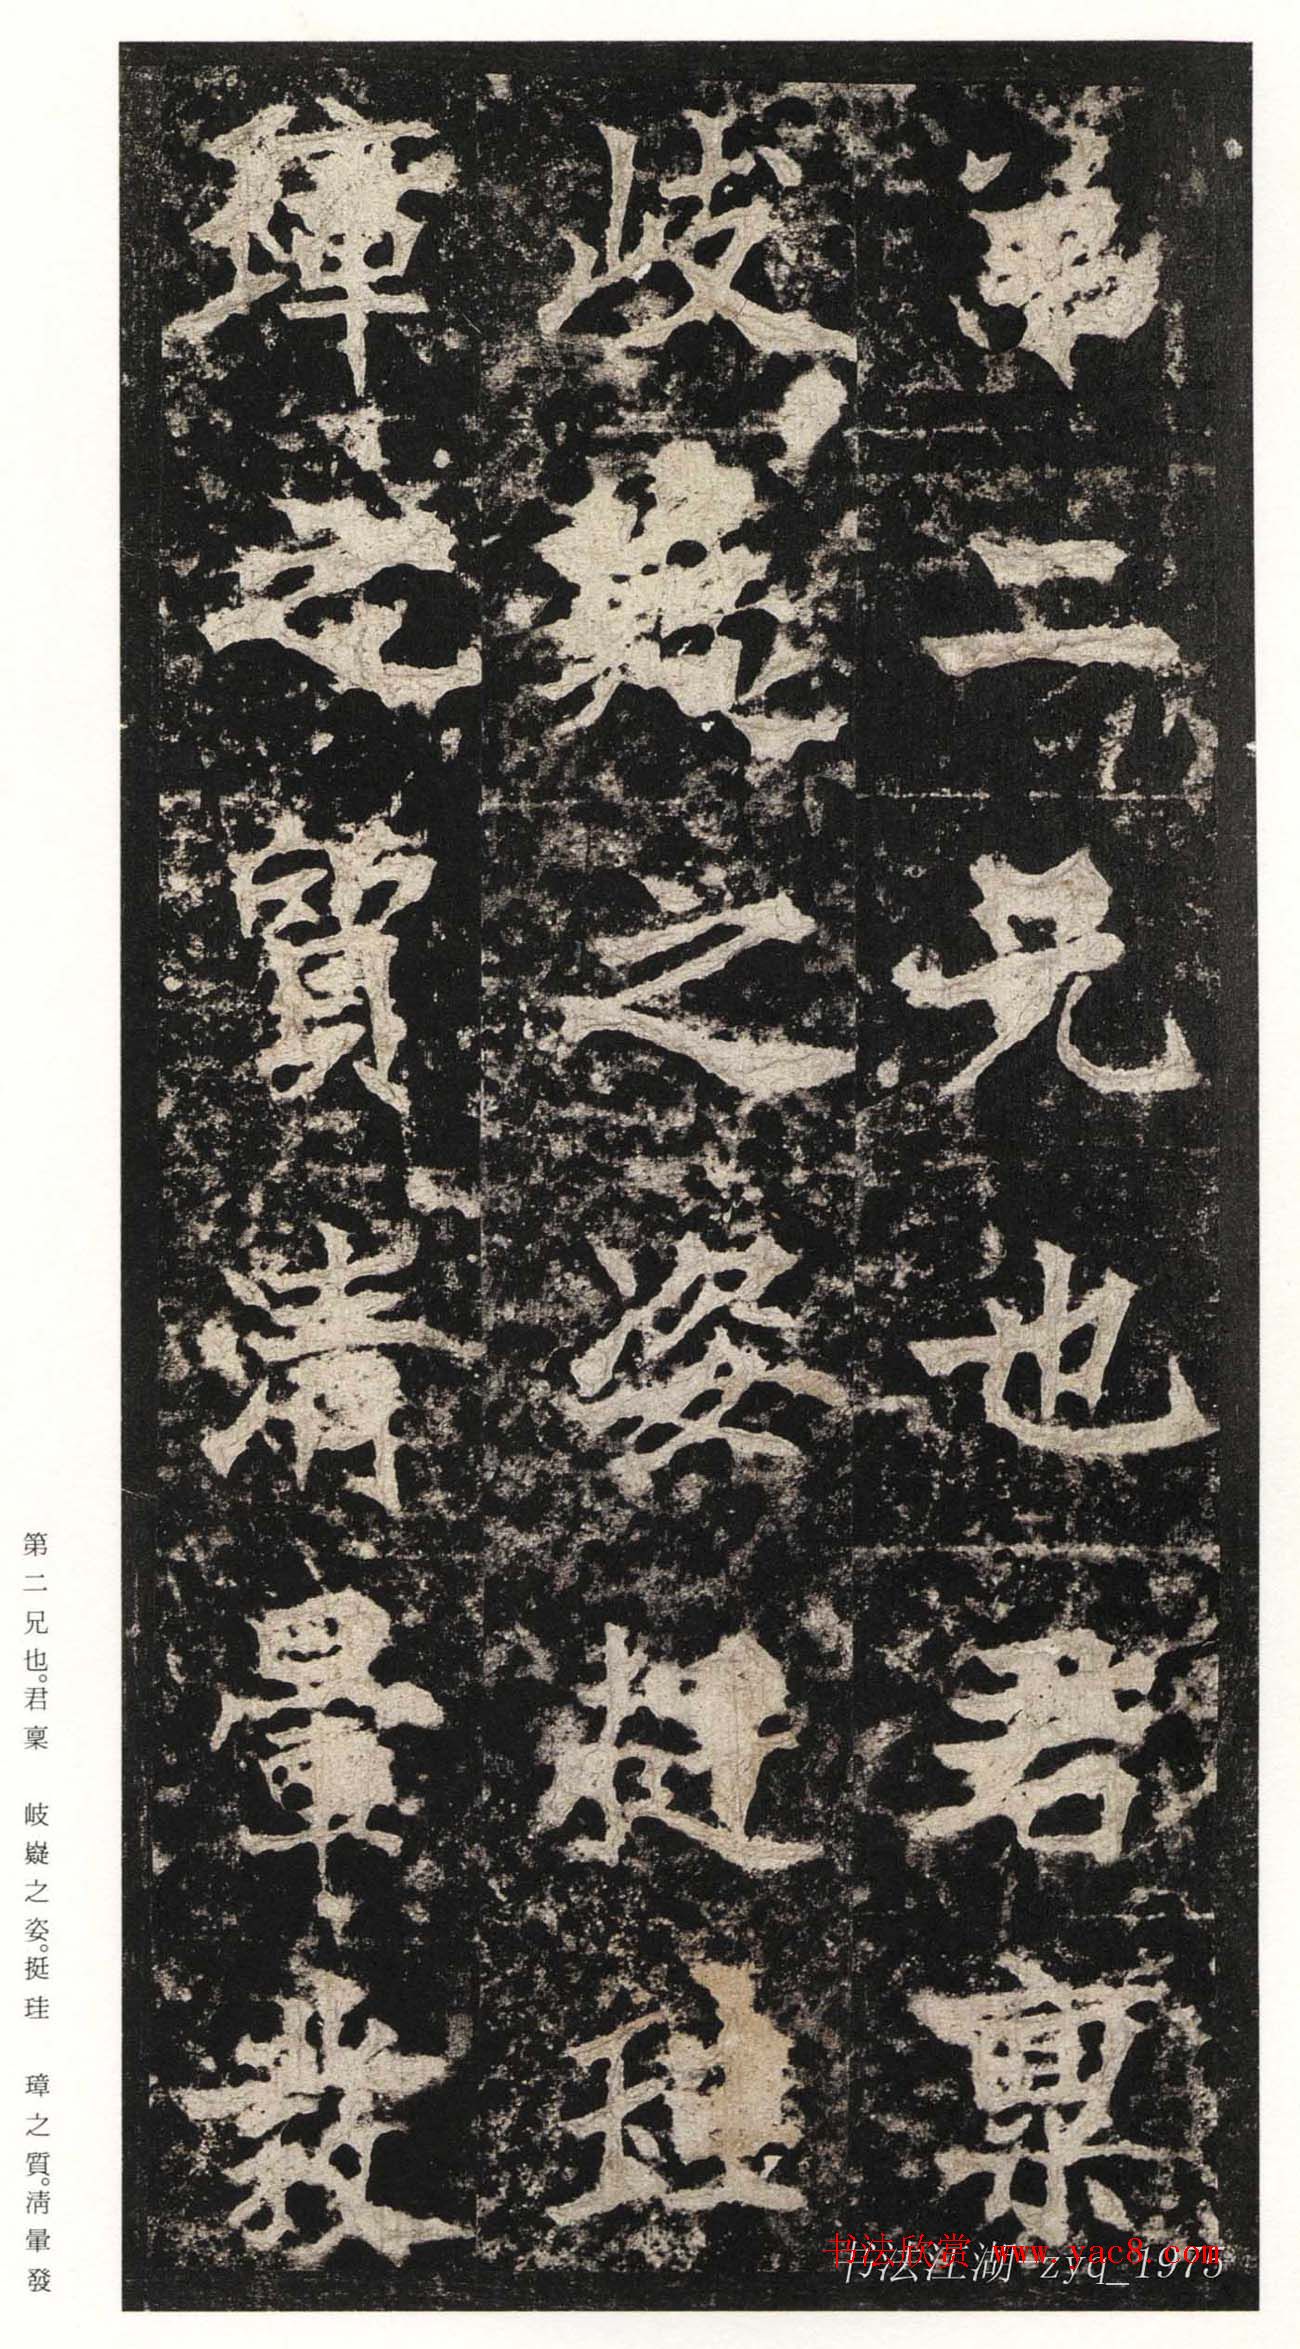 第二兄也君稟
岐嶷之姿挺珪
璋之質清暈發
第二兄也。君稟 岐嶷之姿。挺珪 璋之質。清暈發
书法欣赏 www.yac8.com
书法江湖-zyq_1975